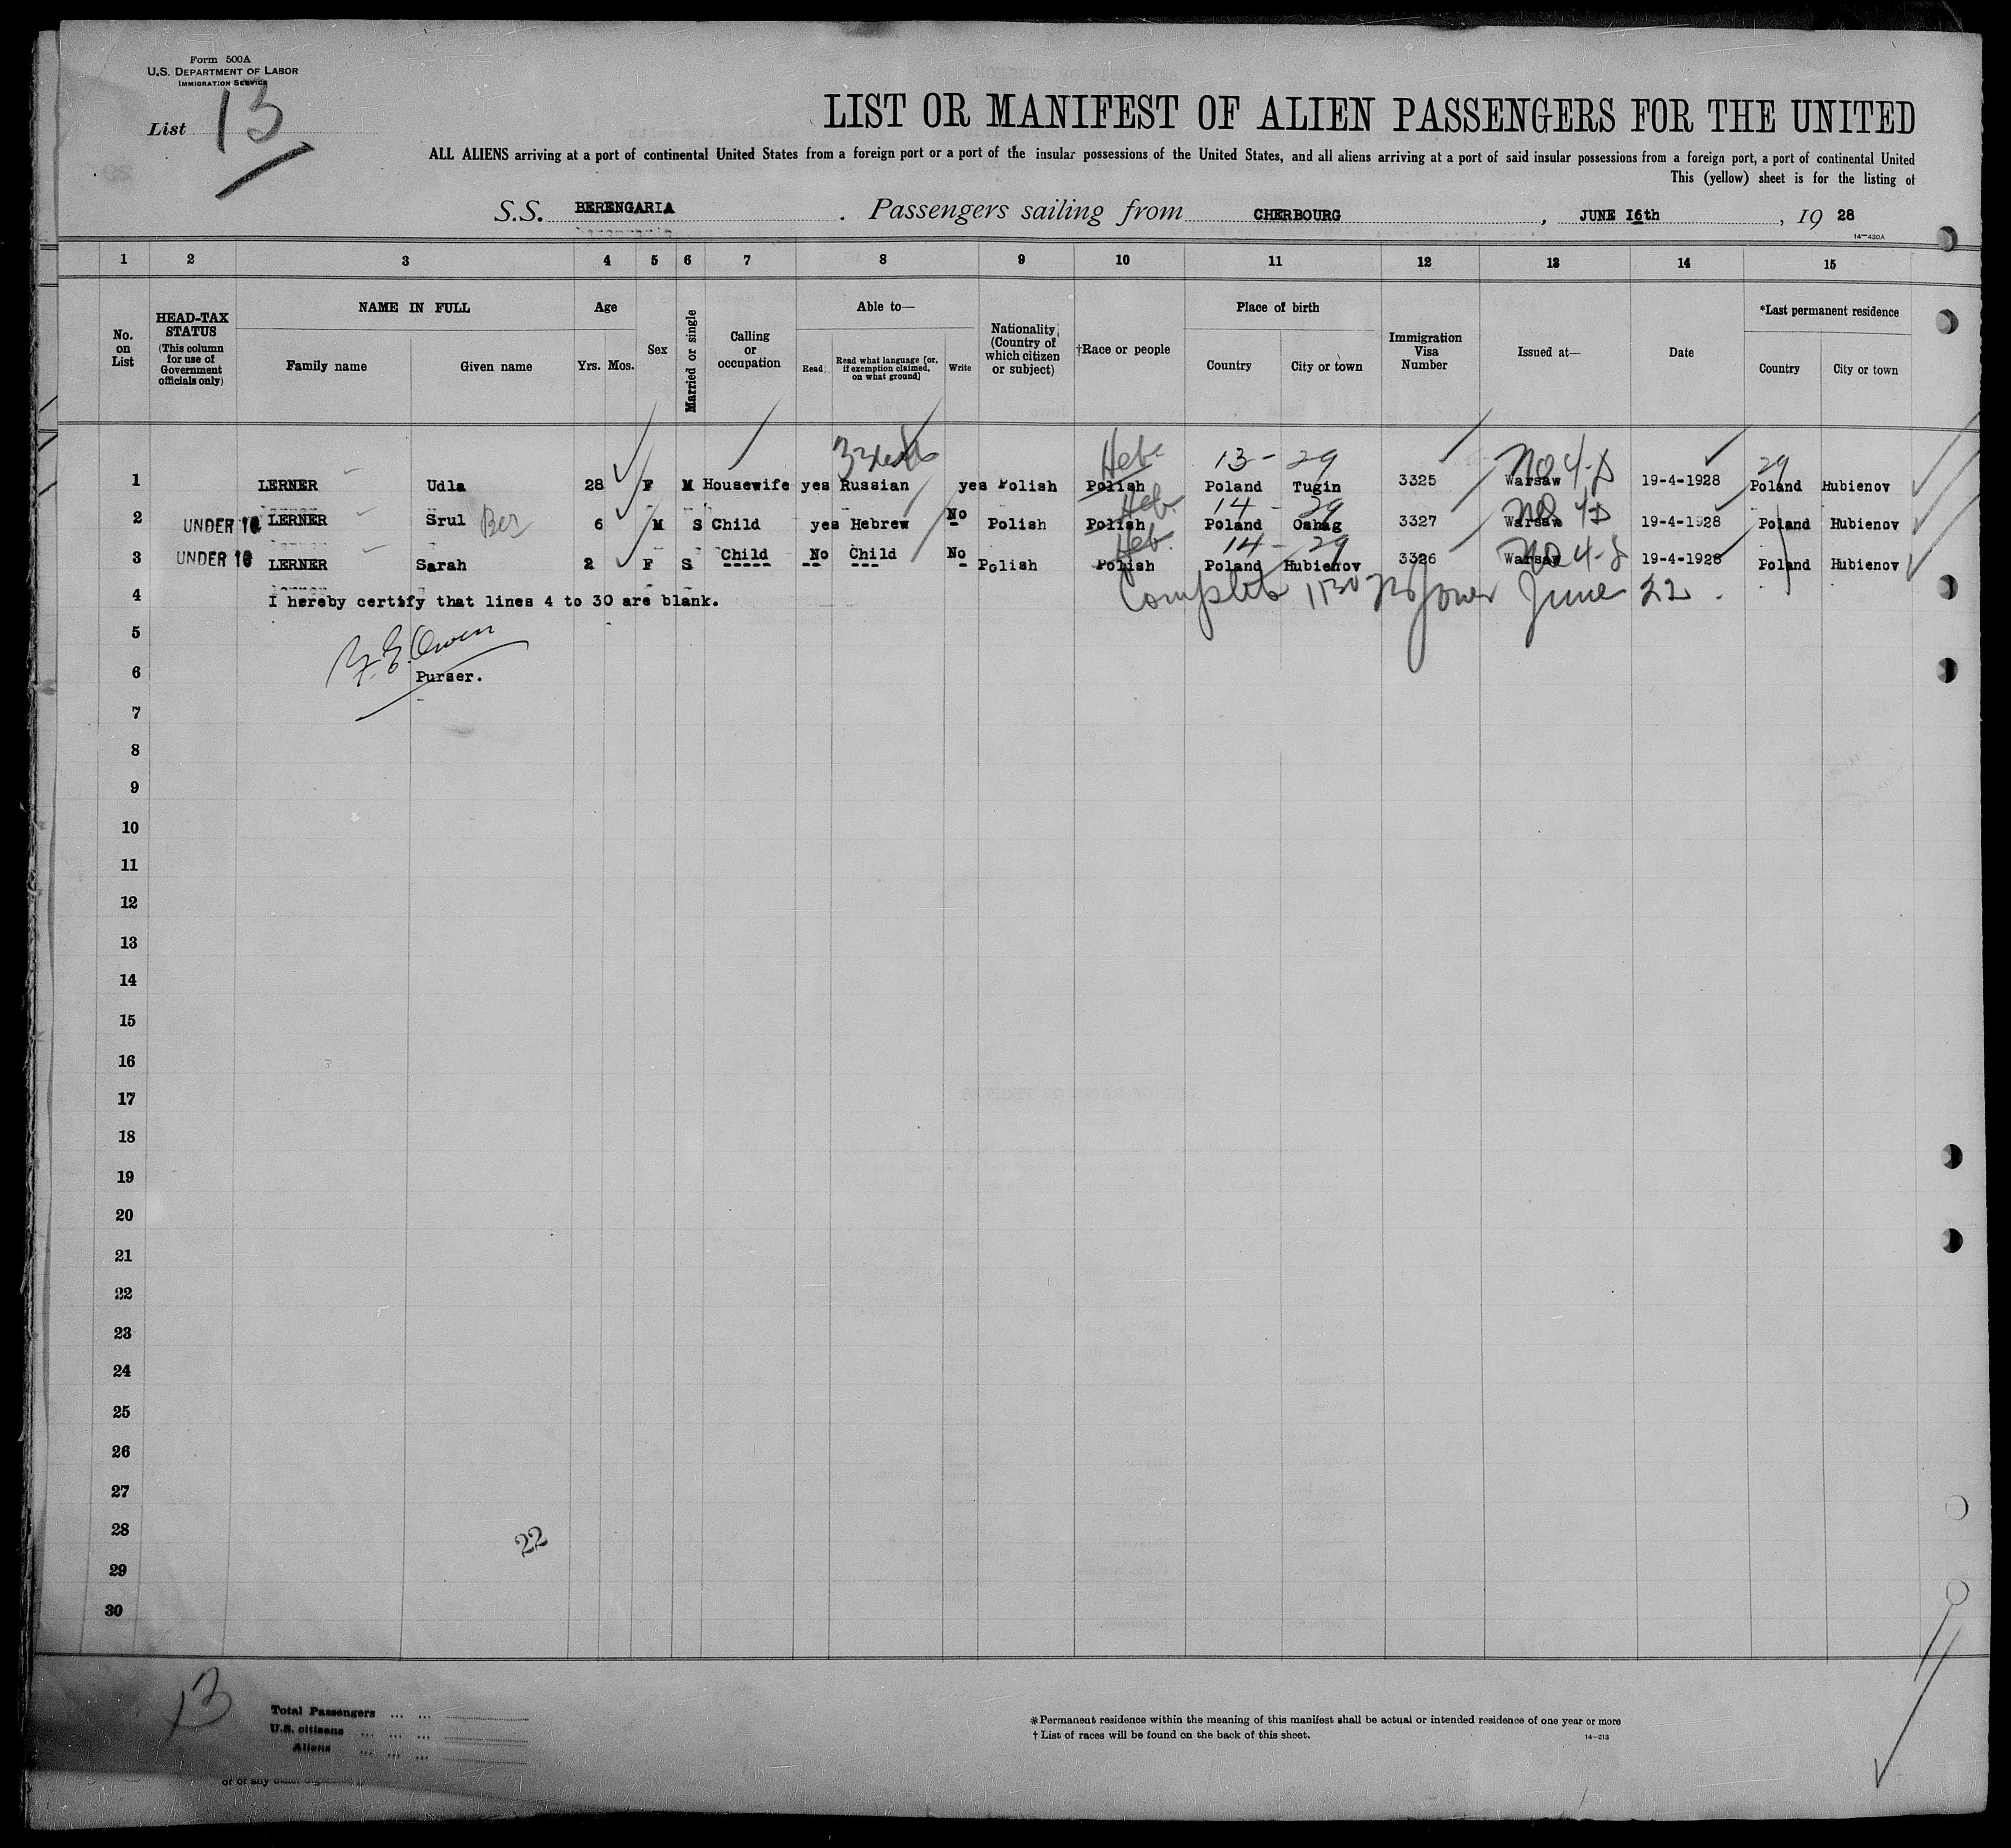 Form 500A
U.S. DEPARTMENT OF LABOR
IMMIGRATION SERVICE
List 13
LIST OR MANIFEST OF ALIEN PASSENGERS FOR THE UNITED
ALL ALIENS arriving at a port of continental United States from a foreign port or a port of the insular possessions of the United States, and all aliens arriving at a port of said insular possessions from a foreign port, a port of continental United
This (yellow) sheet is for the listing of
S.S. BERENGARIA . Passengers sailing from CHERBOURG , JUNE 16th , 19 28
14-430A
1 2 3 4 5 6 7 8 9 10 11 12 13 14 15
No. on List
HEAD-TAX STATUS (This column for use of Government officials only)
NAME IN FULL
Family name Given name
Age
Yrs. Mos.
Sex
Married or single
Calling or occupation
Able to—
Read Read what language [or, if exemption claimed, on what ground] Write
Nationality (Country of which citizen or subject)
†Race or people
Place of birth
Country City or town
Immigration Visa Number
Issued at—
Date
*Last permanent residence
Country City or town
Heb. 13 - 29 No 4-D 29
1 LERNER Udla 28 F M Housewife yes Russian yes Polish Polish Poland Tugin 3325 Warsaw 19-4-1928 Poland Hubienov
Heb. 14 - 29
2 UNDER 16 LERNER Srul Ber 6 M S Child yes Hebrew No Polish Polish Poland Oshag 3327 Warsaw 19-4-1928 Poland Hubienov
Heb. 14 - 29
3 UNDER 16 LERNER Sarah 2 F S Child No Child No Polish Polish Poland Hubienov 3326 Warsaw 19-4-1928 Poland Hubienov
4 I hereby certify that lines 4 to 30 are blank. June 22.
5
6 Purser.
7
8
9
10
11
12
13
14
15
16
17
18
19
20
21
22
23
24
25
26
27
28 22
29
30
13
Total Passengers ... ...
U.S. citizens ... ... ...
Aliens ... ... ...
*Permanent residence within the meaning of this manifest shall be actual or intended residence of one year or more
†List of races will be found on the back of this sheet.
14-213
or of any other